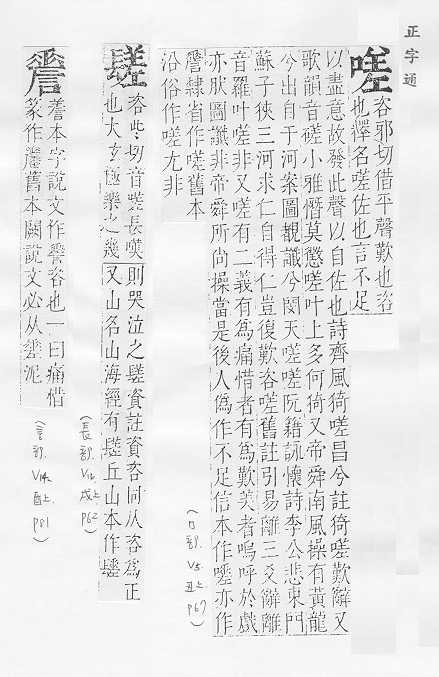 正字通
嗟
咨邪切借平聲歎也咨
也釋名嗟佐也言不足
以盡意故發此聲以自佐也詩齊風猗嗟昌兮註猗嗟歎辭又
歌韻音磋小雅憯莫懲嗟叶上多何猗又帝舜南風操有黃龍
兮出自于河案圖覩讖兮閔天嗟嗟阮籍詠懷詩李公悲東門
蘇子狹三河求仁自得仁豈復歎咨嗟舊註引易離三爻辭離
音羅叶嗟非又嗟有二義有爲痛惜者有爲歎美者嗚呼於戲
亦肰圖讖非帝舜所尚操當是後人僞作不足信本作亦作
隸省作嗟舊本
沿俗作嗟尢非
(口部. V3. 丑上 P67)
咨些切音嗟長嘆則哭泣之資註資咨同从咨爲正
也大玄極樂之幾又山名山海經有丘山本作
(長部. V12. 戌上 P62)
本字說文作咨也一曰痛惜
篆作舊本闕說文必从泥
(言部. V14. 酉上. P81)